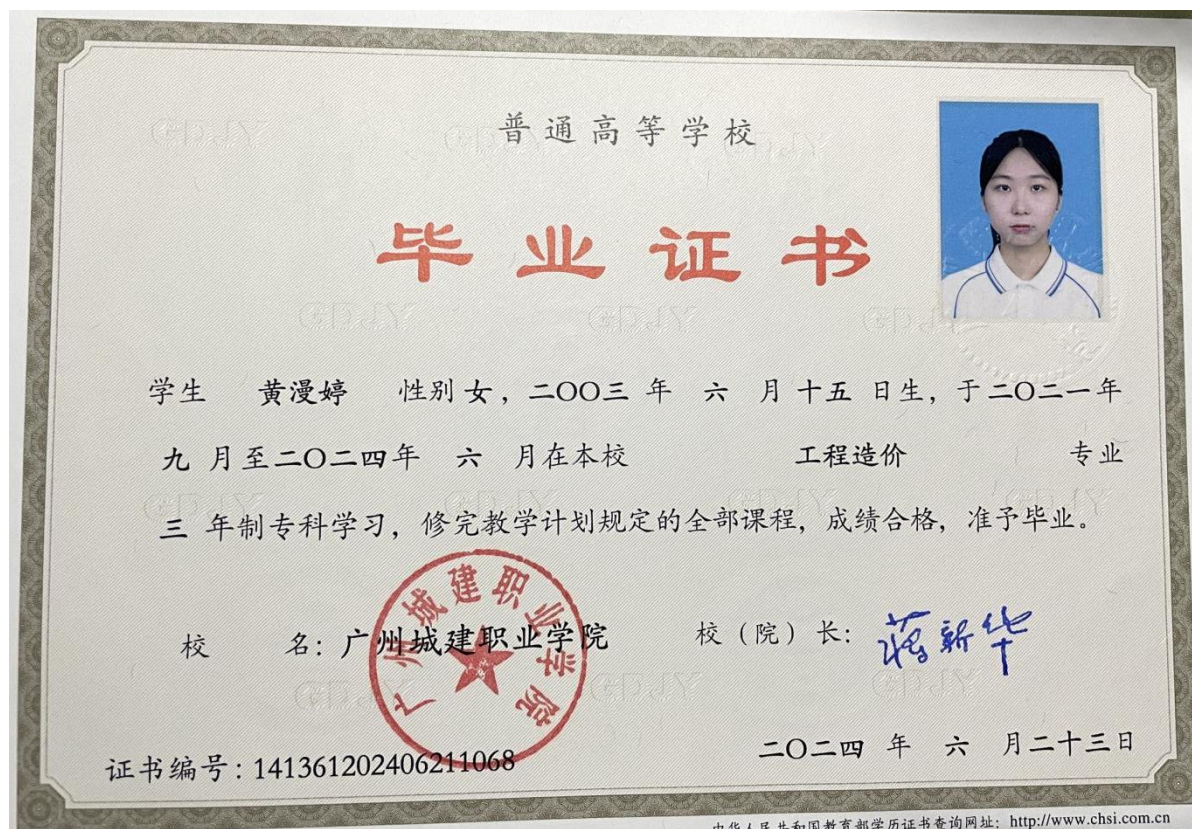 普通高等学校
毕业证书
学生 黄漫婷 性别 女，二〇〇三 年 六 月 十五 日生，于二〇二一年
九 月至二〇二四年 六 月在本校 工程造价 专业
三 年制专科学习，修完教学计划规定的全部课程，成绩合格，准予毕业。
校 名：广州城建职业学院 校（院）长：蒋新华
广州城建职业学院
二〇二四 年 六 月二十三日
证书编号：141361202406211068
中华人民共和国教育部学历证书查询网址：http://www.chsi.com.cn